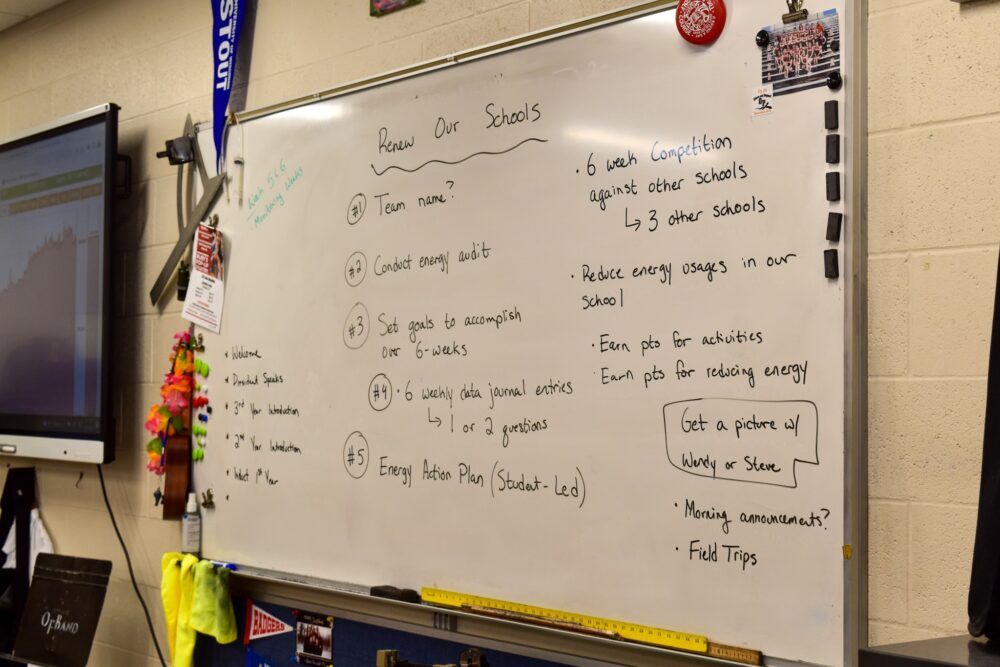 STOUT
Week 5&6
Monitoring Weeks
Renew Our Schools
#1 Team name?
#2 Conduct energy audit
#3 Set goals to accomplish
over 6-weeks
#4 · 6 weekly data journal entries
↳ 1 or 2 questions
#5 Energy Action Plan (Student-Led)
· 6 week Competition
against other schools
↳ 3 other schools
· Reduce energy usages in our
school
· Earn pts for activities
· Earn pts for reducing energy
Get a picture w/
Wendy or Steve
· Morning announcements?
· Field Trips
* Welcome
* President Speaks
* 3rd Year Introduction
* 2nd Year Introduction
* Induct 1st Year
*
BADGERS
OPBAND